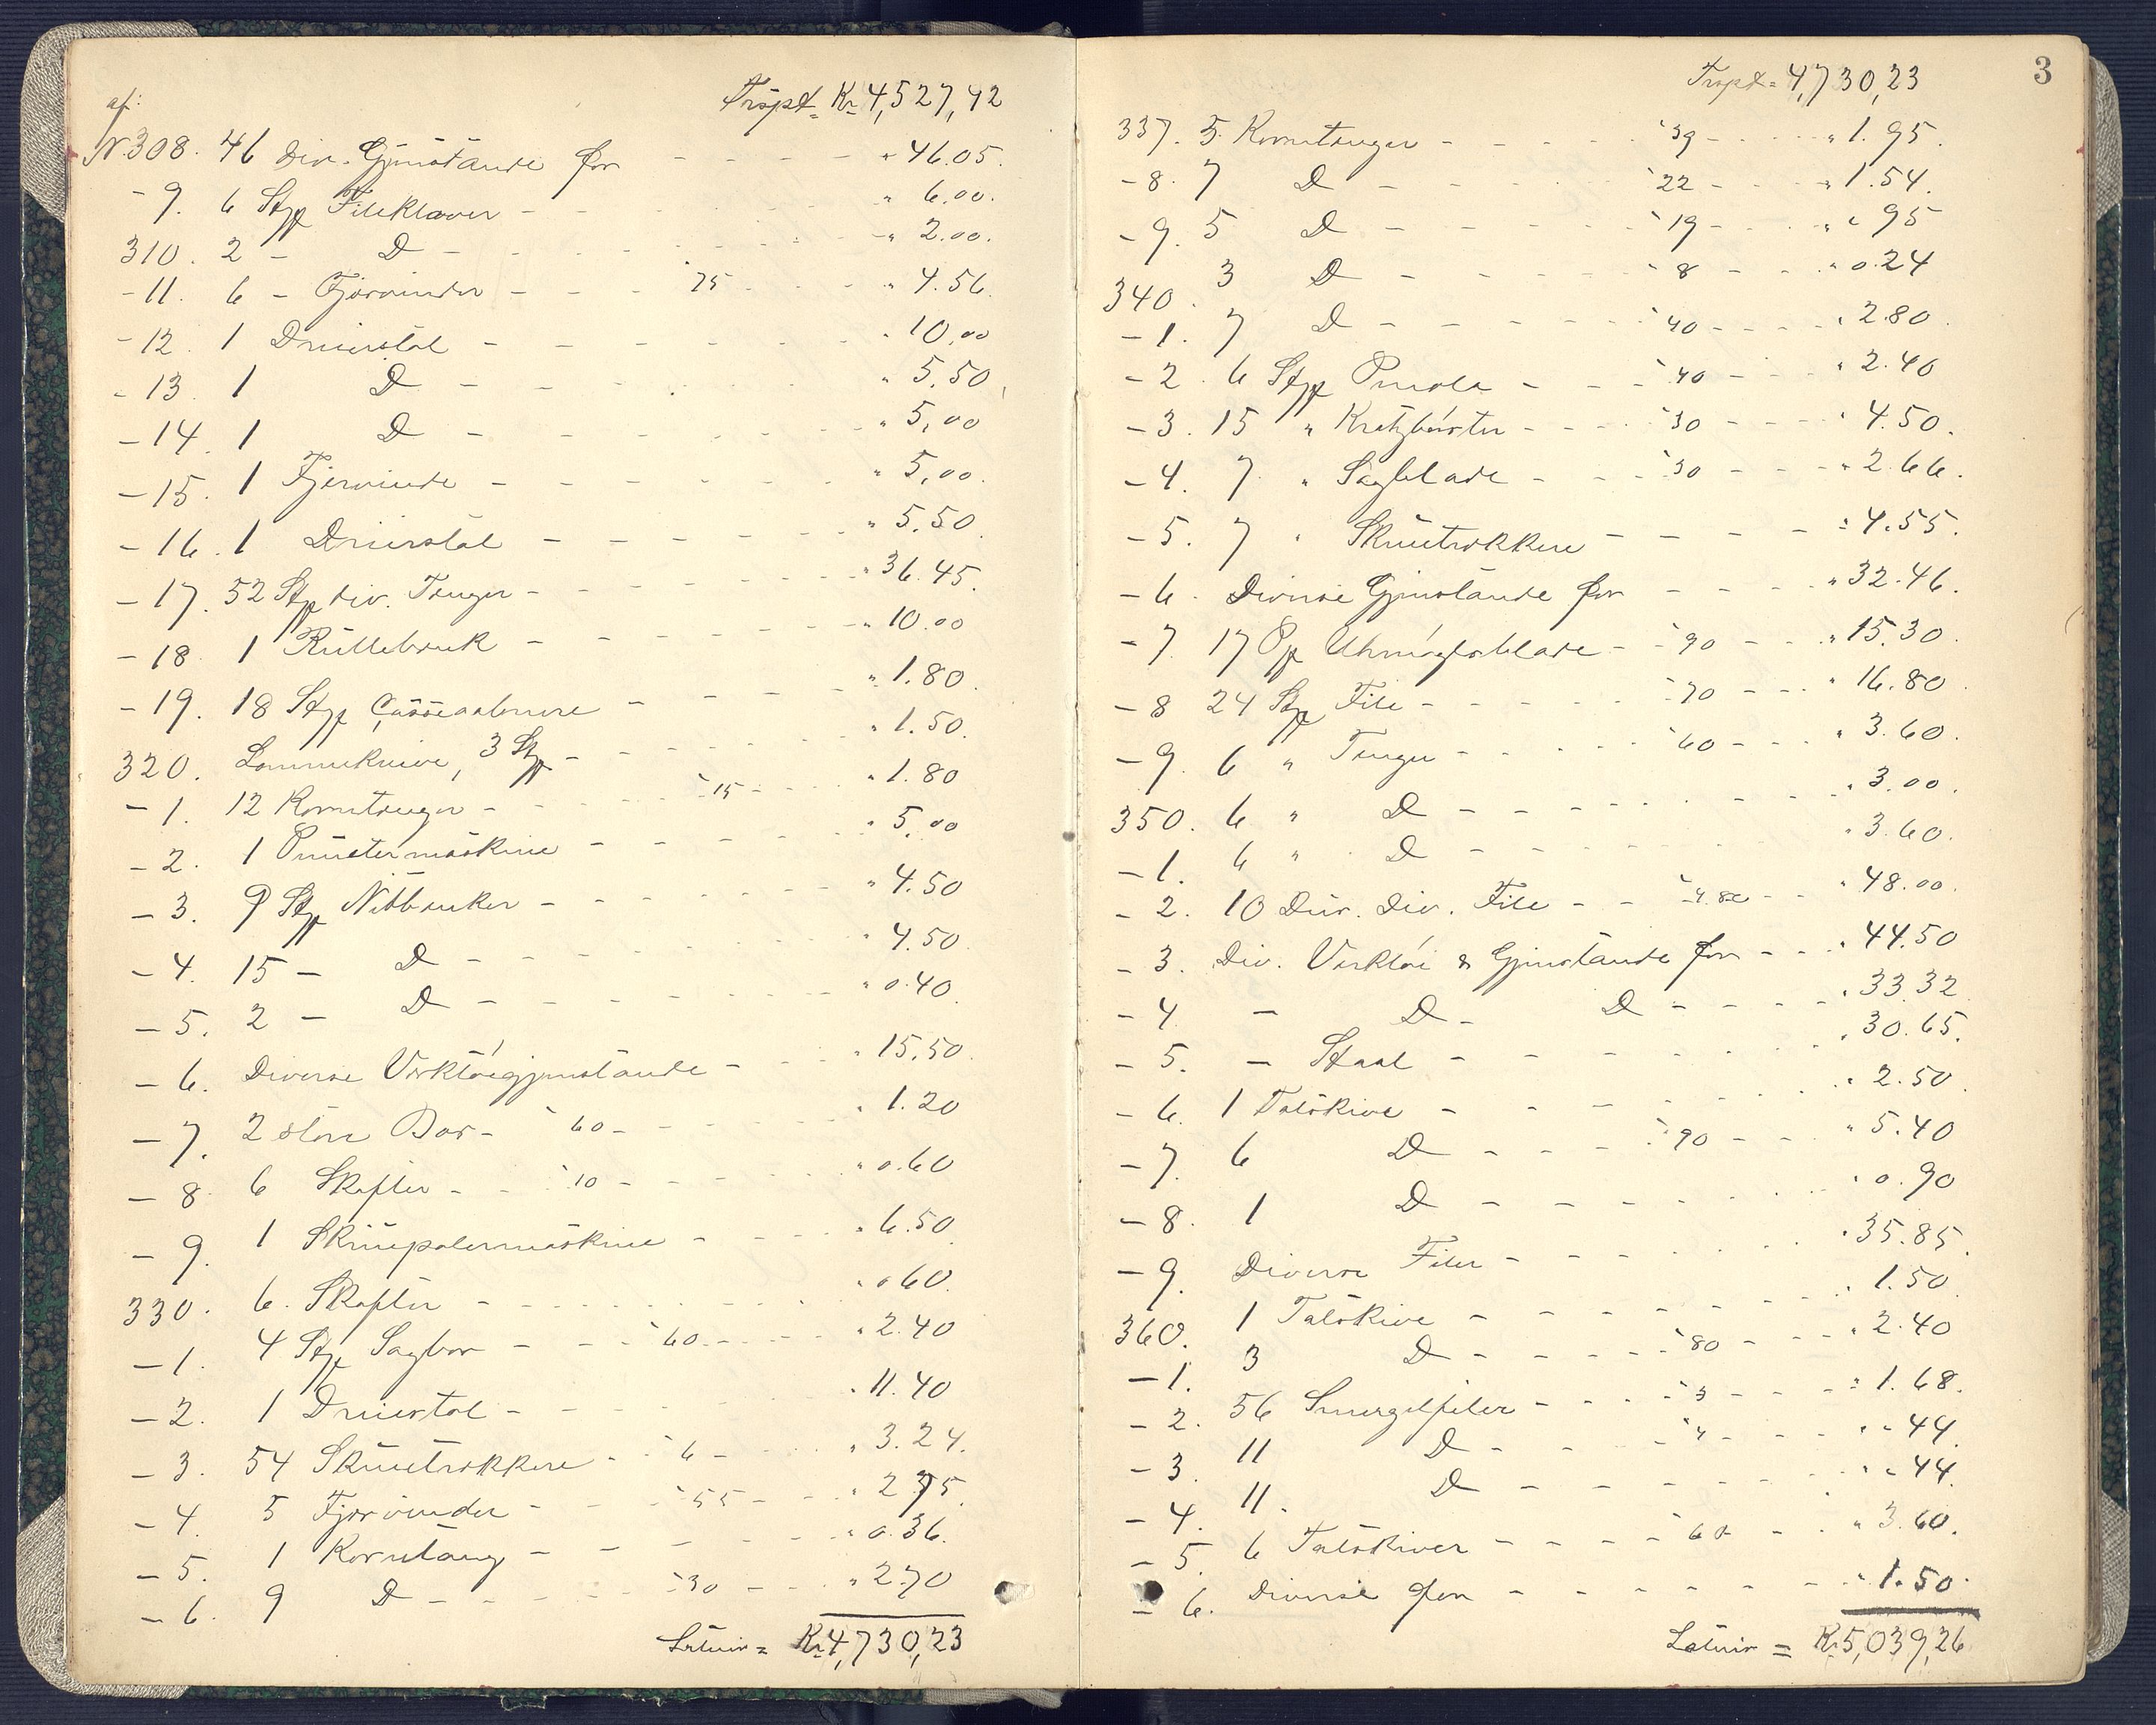 af:
Trspt = Kr 4,527,42
Nr 308. 46 div. Gjenstande for - - - " 46.05.
- 9. 6 Stpp Fileklover - - - " 6.00.
310. 2 - D - - - " 2.00.
- 11. 6 - Fjørvinder - - - 75 - - " 4.56.
- 12. 1 Dreierstol - - - " 10,00
- 13. 1 D - - - " 5.50
- 14. 1 D - - - " 5,00
- 15. 1 Fjervinde - - - " 5,00.
- 16. 1 Dreierstol - - - " 5.50.
- 17. 52 Stpp div. Tenger - - - " 36.45.
- 18. 1 Rullebenk - - - " 10.00
- 19. 18 Stpp - - - " 1.80.
320. Lommeknive, 3 Stpp - - - " 1.50.
- 1. 12 Korntenger - - - 15 - - " 1.80
- 2. 1 - - - " 5.00
- 3. 9 Stpp Nitbenker - - - " 4.50
- 4. 15 - D - - - " 4.50.
- 5. 2 - D - - - " 0.40.
- 6. Diverse Verktøigjenstande - - - " 15.50.
- 7. 2 større Bor - 60 - - - " 1.20
- 8. 6 Skafter - - 10 - - - " 0.60
- 9. 1 Skruepolermaskine - - - " 6.50.
330. 6. Skafter - - - " 0 60.
- 1. 4 Stpp Sagbor - - - 60 - - - " 2.40
- 2. 1 Dreierstol - - - " 11.40
- 3. 54 Skruetrekkere - 6 - - " 3.24.
- 4. 5 Fjørvinder - - 55 - - " 2.75.
- 5. 1 Korntang - - - " 0.36.
- 6. 9 D - - - 30 - - " 2.70
Latuir = Kr 4,730,23
3
Trspt = 4,730,23
337. 5 Korntenger - - - 39 - - - " 1.95.
- 8. 7 D - - - 22 - - - " 1.54.
- 9. 5 D - - - 19 - - - " " 95
340. 3 D - - - 8 - - " 0.24
- 1. 7 D - - - 40 - - - " 2.80.
- 2. 6 Stpp - - - 40 - - - " 2.40
- 3. 15 " Kratzbørster - - - 30 - - - " 4.50.
- 4. 7 " Sagblade - - - 30 - - - " 2.66.
- 5. 7 " Skruetrekkere - - - " 4.55.
- 6. Diverse Gjenstande for - - - " 32.46.
- 7. 17 Pp Uhrnøglablade - - 90 - - " 15.30.
- 8 24 Stpp File - - - 70 - - - " 16.80.
- 9. 6 " Tenger - - - 60 - - - " 3.60.
350. 6 " D - - - " 3.00.
- 1. 6 " D - - - " 3.60.
- 2. 10 Dus. Div. File - - 4.80 - - " 48.00.
- 3. Div. Verktøi & Gjenstande for - - " 44.50
- 4 - D - D - - - " 33.32
- 5. - Staal - - - " 30.65.
- 6. 1 Talskive - - - " 2.50.
- 7. 6 D - - - 90 - - " 5.40
- 8. 1 D - - - " 0.90
- 9. Diverse Filer - - - " 35.85.
360. 1 Talskive - - - " 1.50.
- 1. 3 D - - - 80 - - - " 2.40
- 2. 56 Smergelfiler - - - 3 - - - " 1.68.
- 3. 11 D - - - 4 - - - " " 44.
- 4. 11. D - - - " " 44.
- 5. 6 Talskiver - - - 60 - - " 3.60.
- 6. Diverse for - - - " 1.50.
Latuir = Kr 5,039,26